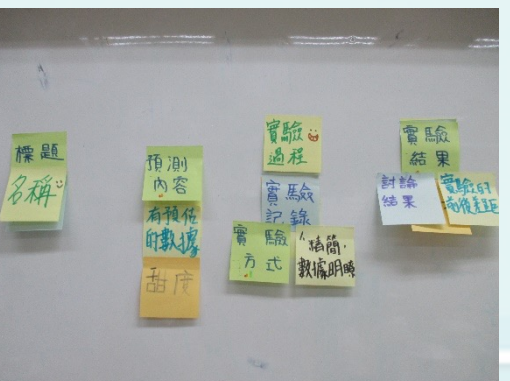 標題
名稱
預測
內容
有預估
的數據
甜度
實驗
過程
實驗
記錄
實驗
方式
精簡，
數據明瞭
實驗
結果
討論
結果
實驗的
前後差距